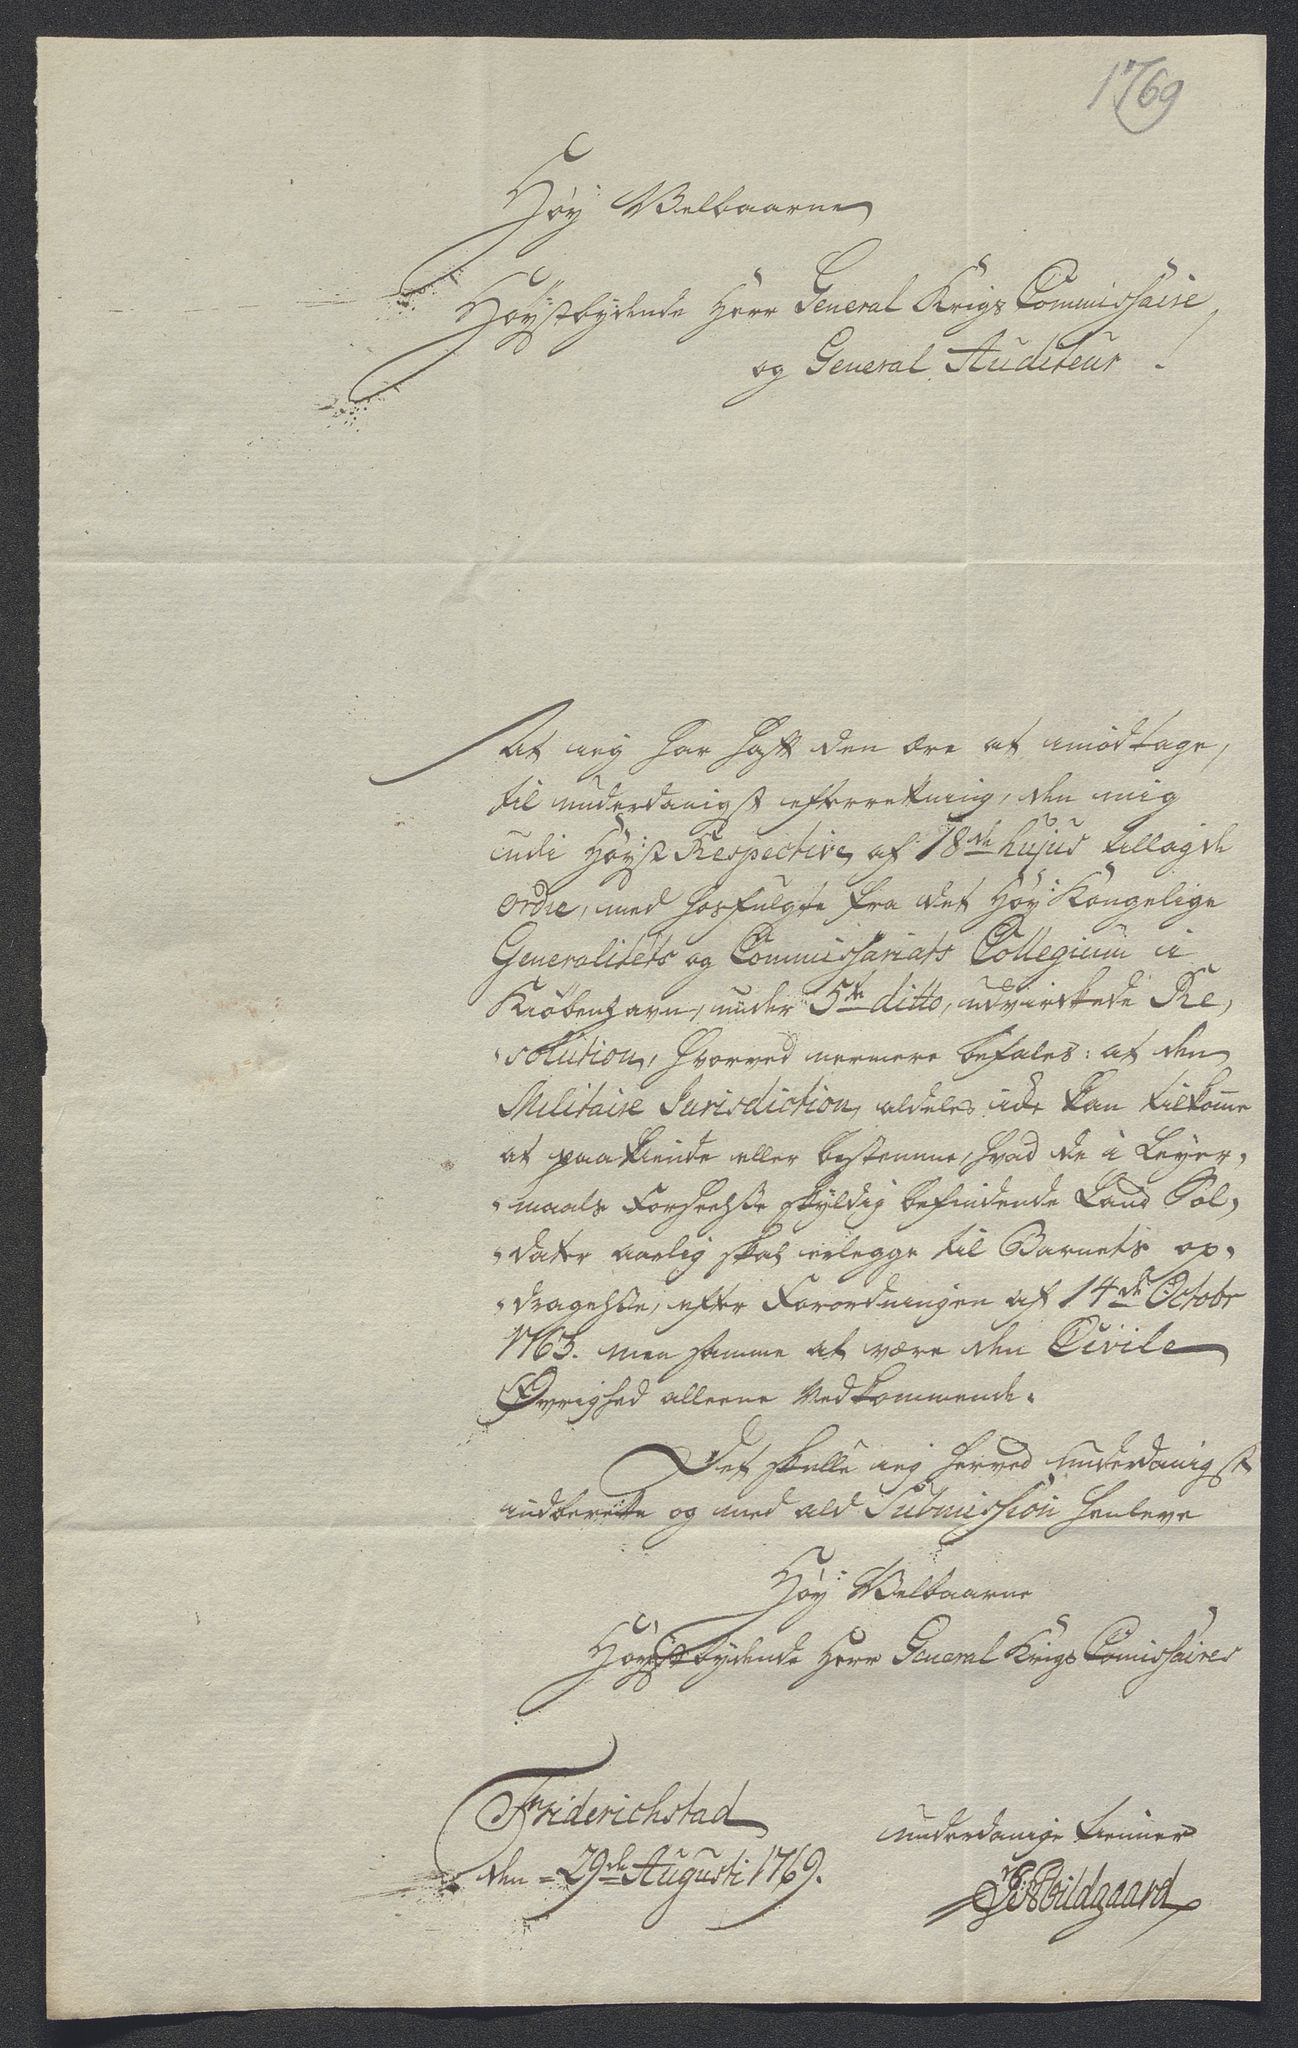 1769
Høy Velbaarne
Høystbydende Herr General Krigs Commissaire
og General Auditeur !
At ieg har haft den ære at imodtage,
til underdanigst efterretning, den mig
udi Høyst Respective af 18de hujus tillagde
ordre, med hosfulgte fra det Høy Kongelige
Generalitets og Commissariats Collegium i
Kiøbenhavn, under 5te ditto, udvirckede Re,
solution, hvorved nermere befales: at den
Militaire Jurisdiction, aldeles icke kan tilkome
at paakiende eller bestemme, hvad de i Leyer,
maals Forseelse skyldig befindende Land Sol,
dater aarlig skal erlegge til Barnets op,
dragelse, efter Forordningen af 14de Octobr
1763. men samme at være den Civile
Øvrighed alleene Vedkommende.
Det skulle ieg herved underdanigst
indberette og med ald Submission henleve
Høy Velbaarne
Høystbydende Herr General Krigs Comissaires
Friderichstad
den 29de Augusti 1769.
underdanige tienner
Abildgaard